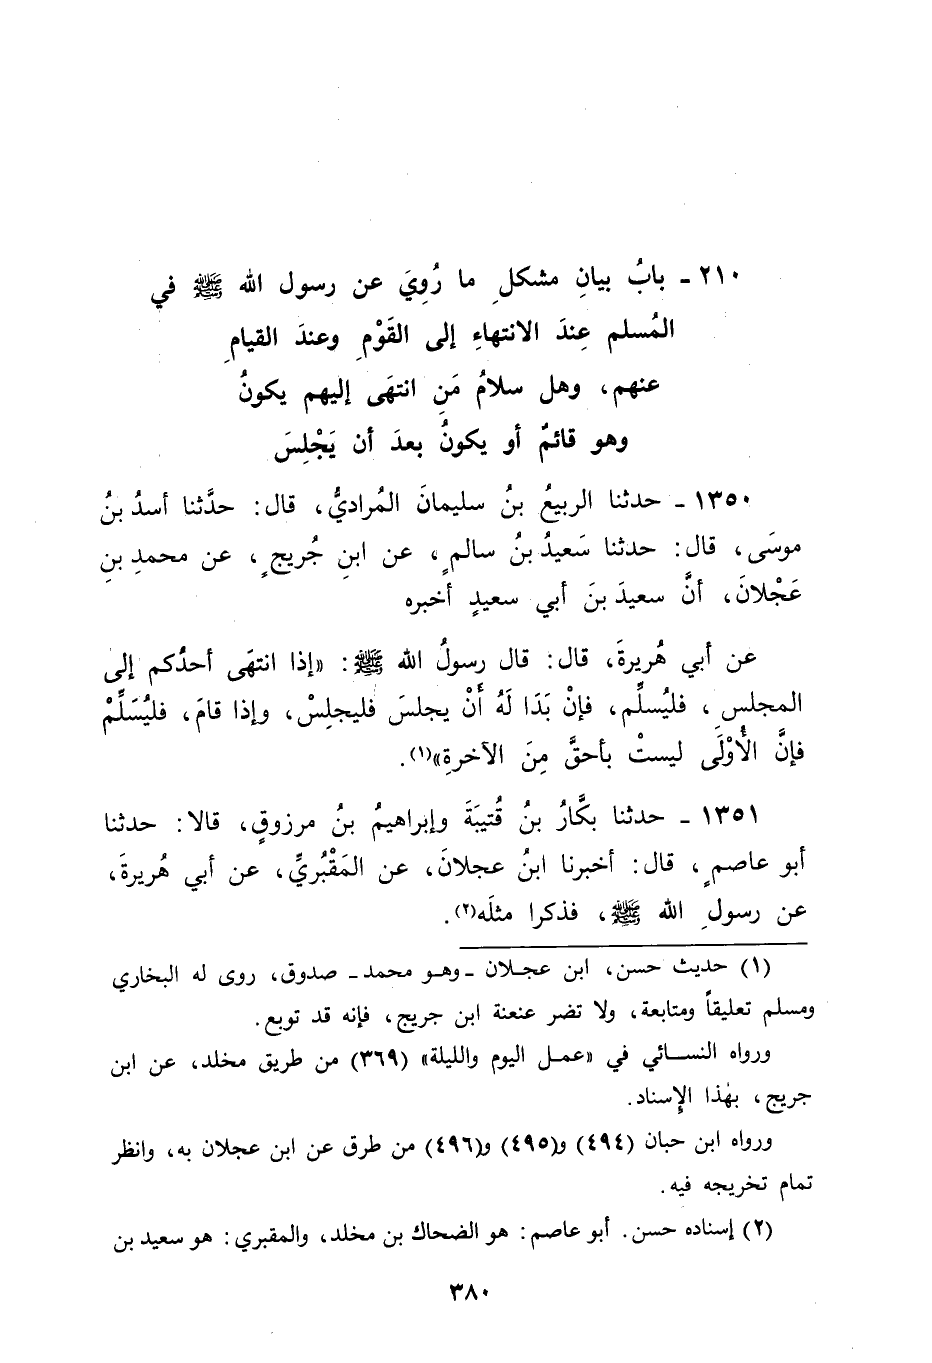 ٢١٠ ـ بابُ بيانِ مشكلِ ما رُوِيَ عن رسول الله ﷺ في
المُسلم عِندَ الانتهاءِ إلى القَوْمِ وعندَ القيامِ
عنهم، وهل سلامُ مَنِ انتهَى إليهم يكونُ
وهو قائمٌ أو يكونُ بعدَ أن يَجْلِسَ
١٣٥٠ ـ حدثنا الربيعُ بنُ سليمانَ المُراديُّ، قال: حدَّثنا أسدُ بنُ
موسَى، قال: حدثنا سَعيدُ بنُ سالمٍ، عن ابنِ جُريجٍ، عن محمدِ بنِ
عَجْلانَ، أنَّ سعيدَ بنَ أبي سعيدٍ أخبره
عن أبي هُريرةَ، قال: قال رسولُ الله ﷺ: «إذا انتهَى أحدُكم إلى
المجلسِ، فليُسلِّم، فإنْ بَدَا لَهُ أَنْ يجلسَ فليجلِسْ، وإذا قامَ، فليُسَلِّمْ
فإنَّ الأُوْلَى ليستْ بأحقَّ مِنَ الآخرةِ»(١).
١٣٥١ ـ حدثنا بكَّارُ بنُ قُتيبَةَ وإبراهيمُ بنُ مرزوقٍ، قالا: حدثنا
أبو عاصمٍ، قال: أخبرنا ابنُ عجلانَ، عن المَقْبُريِّ، عن أبي هُريرةَ،
عن رسولِ الله ﷺ، فذكرا مثلَه(٢).
(١) حديث حسن، ابن عجلان ـ وهو محمد ـ صدوق، روى له البخاري
ومسلم تعليقاً ومتابعة، ولا تضر عنعنة ابن جريج، فإنه قد توبع.
ورواه النسائي في «عمل اليوم والليلة» (٣٦٩) من طريق مخلد، عن ابن
جريج، بهٰذا الإِسناد.
ورواه ابن حبان (٤٩٤) و(٤٩٥) و(٤٩٦) من طرق عن ابن عجلان به، وانظر
تمام تخريجه فيه.
(٢) إسناده حسن. أبو عاصم: هو الضحاك بن مخلد، والمقبري: هو سعيد بن
٣٨٠